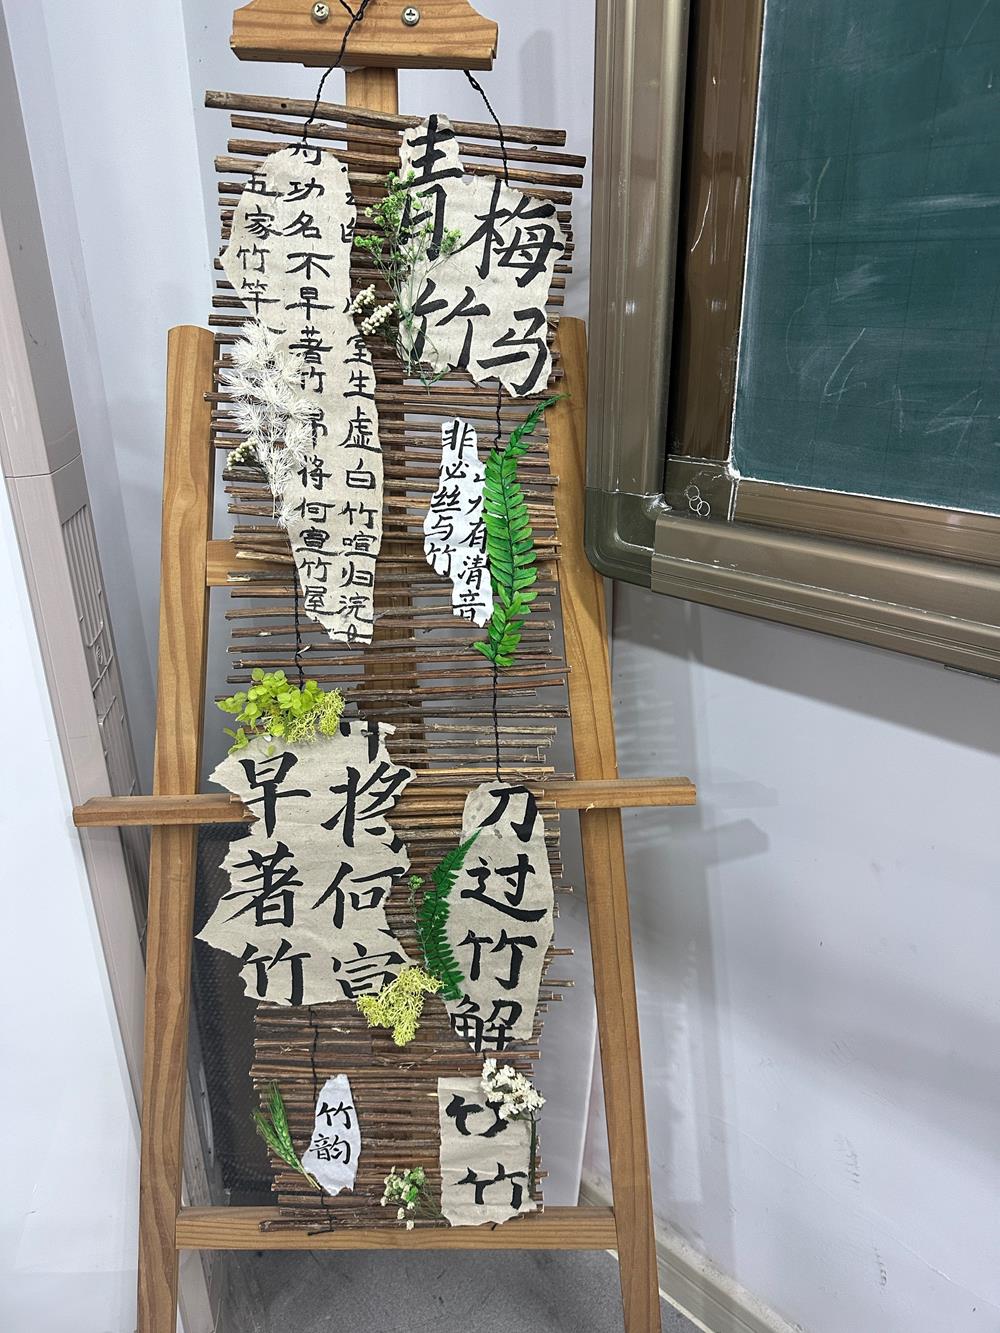 青梅
竹马
室生虚白竹喧归浣
功名不早著竹帛将何宣竹屋
五家竹竿
非必丝与竹
有清音
将何宣
早著竹
刀过竹解
竹韵
竹
竹